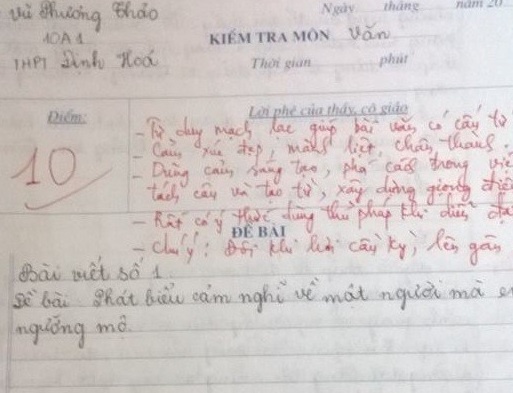 Vũ Phương Thảo
Ngày tháng năm 20
10A1
KIỂM TRA MÔN Văn
THPT Định Hoá
Thời gian phút
Điểm:
Lời phê của thầy, cô giáo
10
- Tư duy mạch lạc giúp bài văn có cấu tứ
- Cảm xúc đẹp, mãnh liệt, chân thành.
- Dùng câu sáng tạo, phá cách trong việ
tách câu và tạo từ, xây dựng giọng điệ
- Rất có ý thức dùng thủ pháp khi diễn đạ
ĐỀ BÀI
- Chú ý: Đôi khi hơi cầu kỳ, lên gân
Bài viết số 1.
Đề bài. Phát biểu cảm nghĩ về một người mà e
ngưỡng mộ.